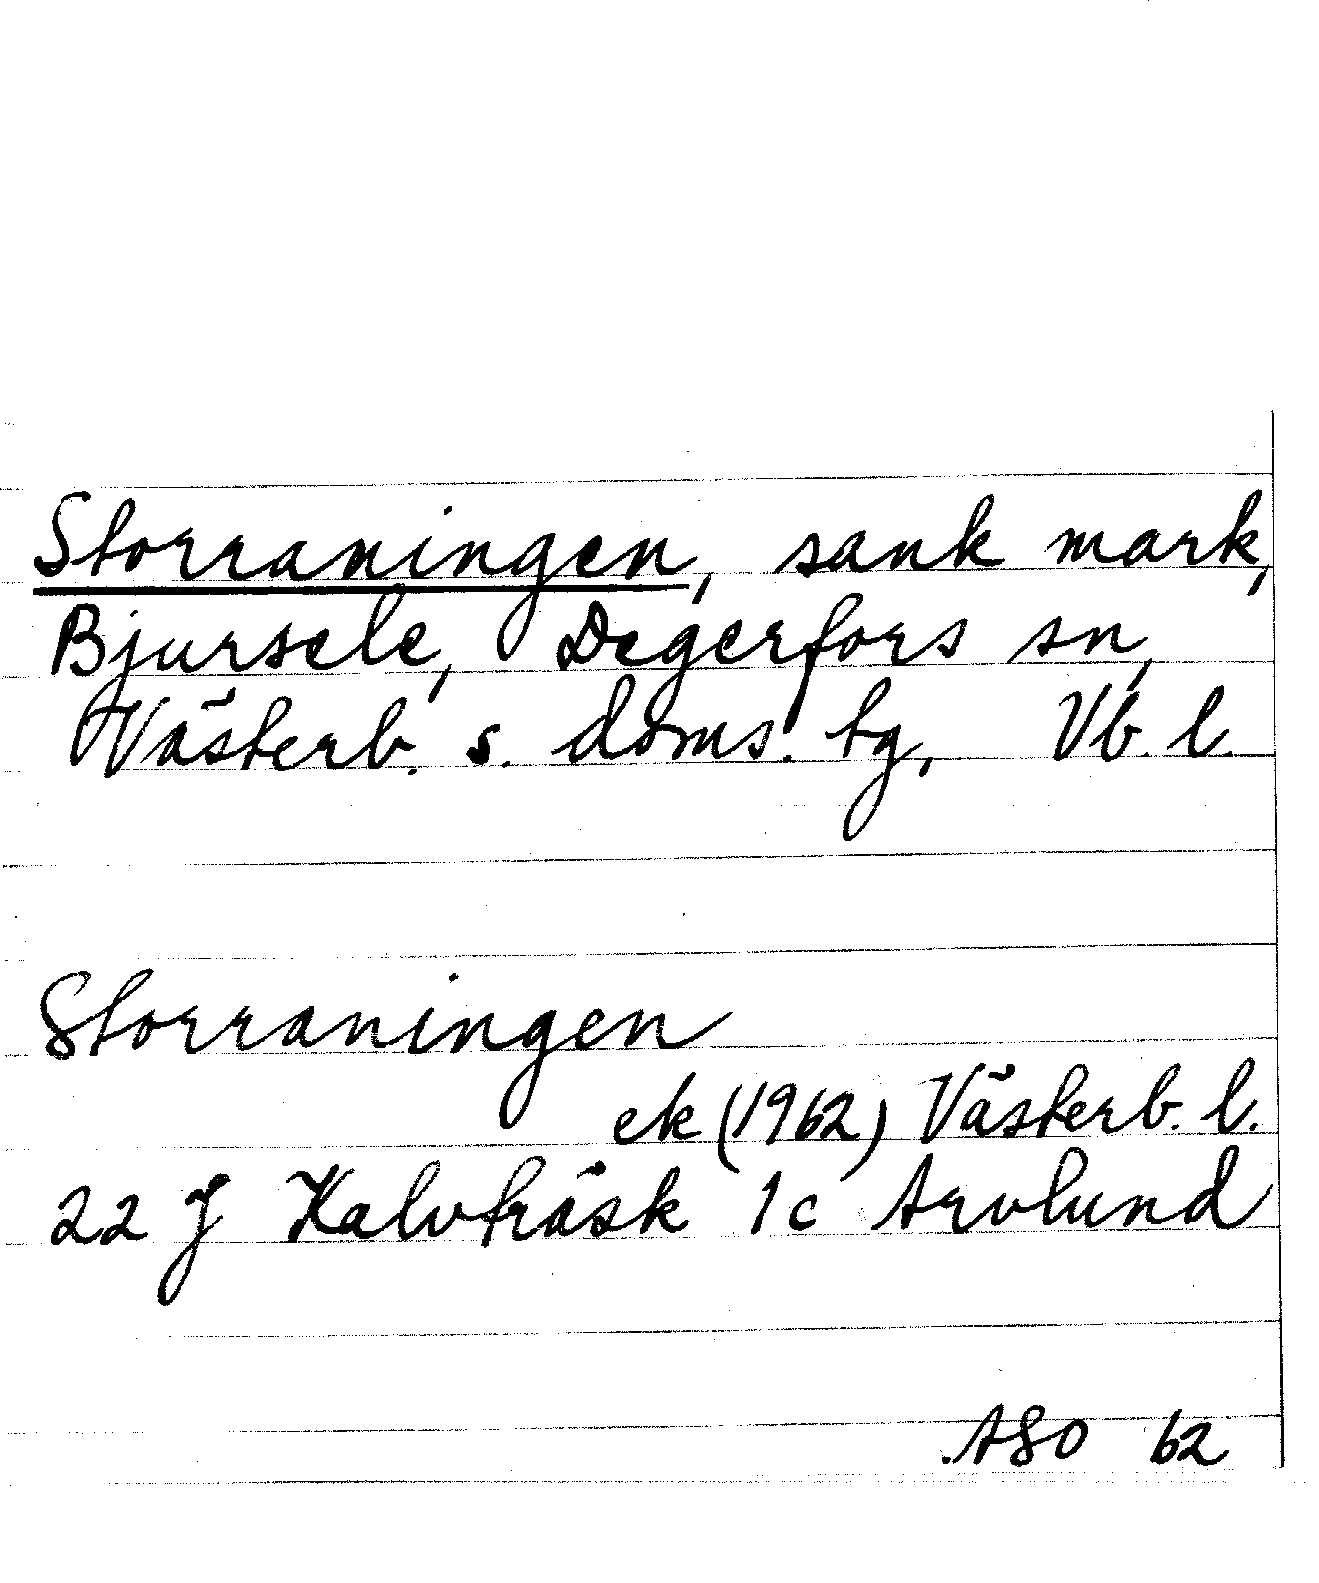 Storraningen, sank mark,
Bjursele, Degerfors sn,
Västerb. s. doms. tg, Vb. l.
Storraningen
ek (1962) Västerb. l.
22 J Kalvträsk 1c Arvlund
ASO 62